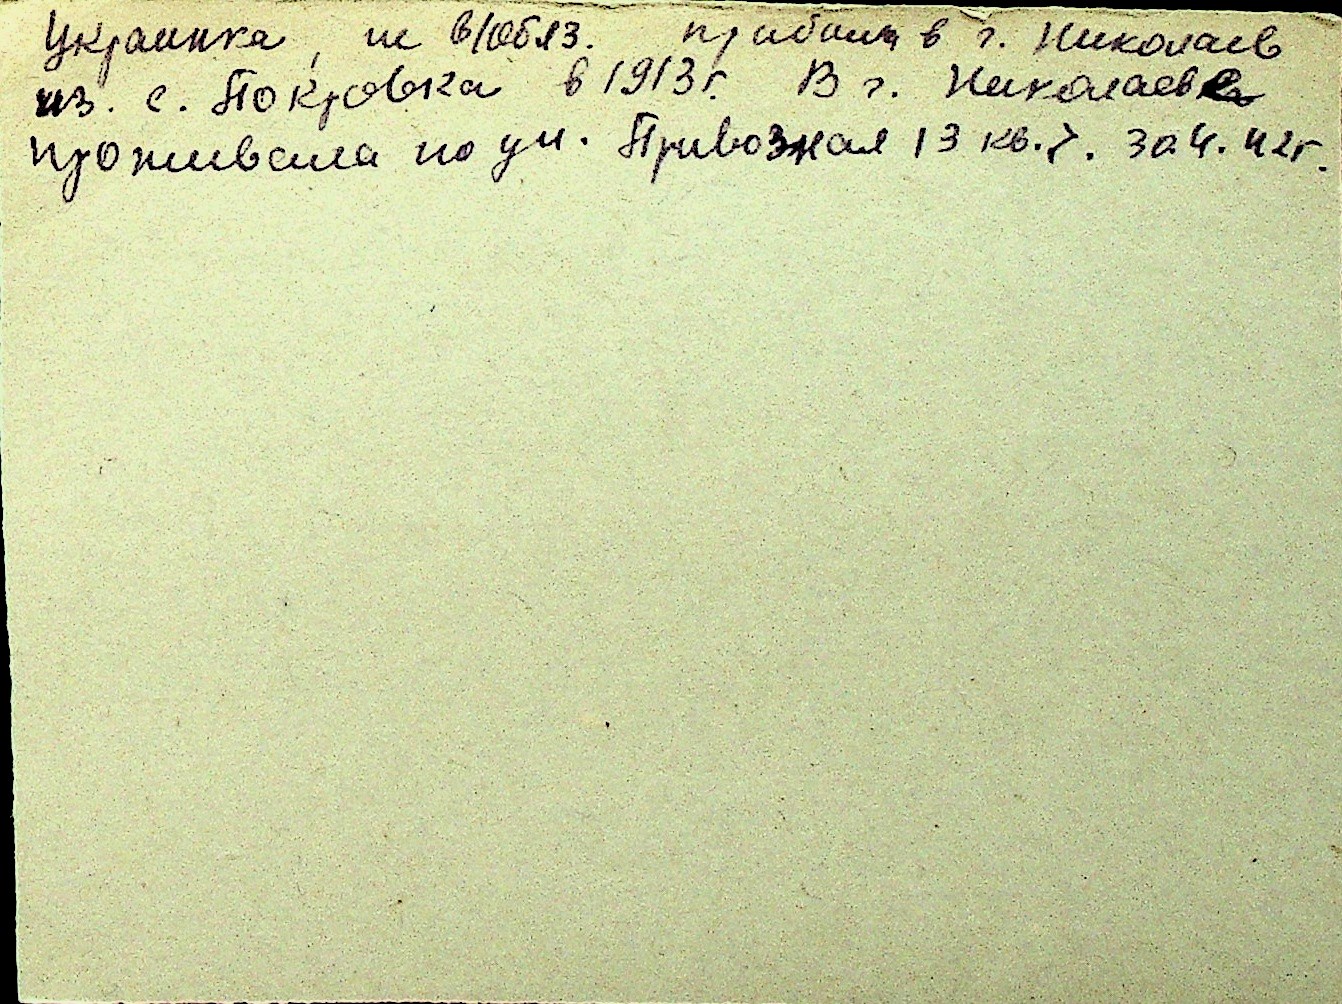 Украинка, не в/обяз. прибыла в г. Николаев
из. с. Покровка в 1913 г. В г. Николаеве
проживала по ул. Привозная 13 кв. 7. 30.4.42г.